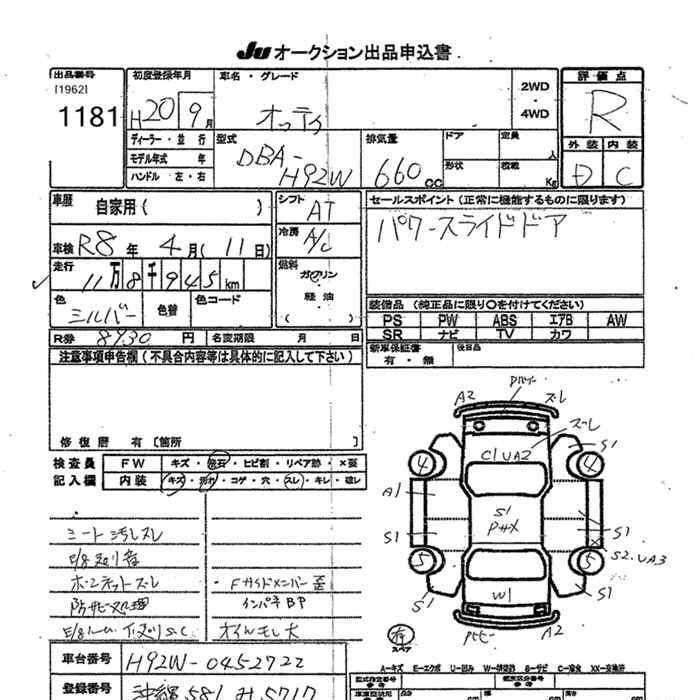 Ju オークション出品申込書
出品番号
[1962]
1181
初度登録年月
H20 9月
車名・グレード
オッティ
2WD
・
4WD
評価点
R
ディーラー・並行
モデル年式 年
ハンドル 左・右
型式
DBA-
H92W
排気量
660 cc
ドア
定員
人
形状
積載
Kg
外装 内装
D C
車歴
自家用( )
シフト
AT
セールスポイント (正常に機能するものに限ります)
パワースライドドア
車検 R8年 4月(11日)
冷房
A/C
走行
11万8千945km
燃料
ガソリン
・
軽油
( )
色
シルバー
色替
色コード
装備品 (純正品に限り○を付けてください)
PS PW ABS エアB AW
SR ナビ TV カワ
R券 8930円
名変期限 月 日
新車保証書
有・無
後日品
注意事項申告欄(不具合内容等は具体的に記入して下さい)
修復歴 有〔箇所 〕
検査員
記入欄
FW キズ・飛石・ヒビ割・リペア跡・X要
内装 キズ・汚れ・コゲ・穴・スレ・キレ・破レ
シート汚レスレ
ボンネットズレ
防サビ処理
・Fサイドメンバー歪
インパネBP
オイルモレ大
A2
ズレ
ズレ
S1
C1 UA2
4
4
A1
S1
Pキズ
S1
S1
S2.UA3
5
5
S1
W1
S1
A2
有
スペア
車台番号 H92W-0452722
A-キズ E-エクボ U-凹み
登録番号 沖縄 581 み 5717